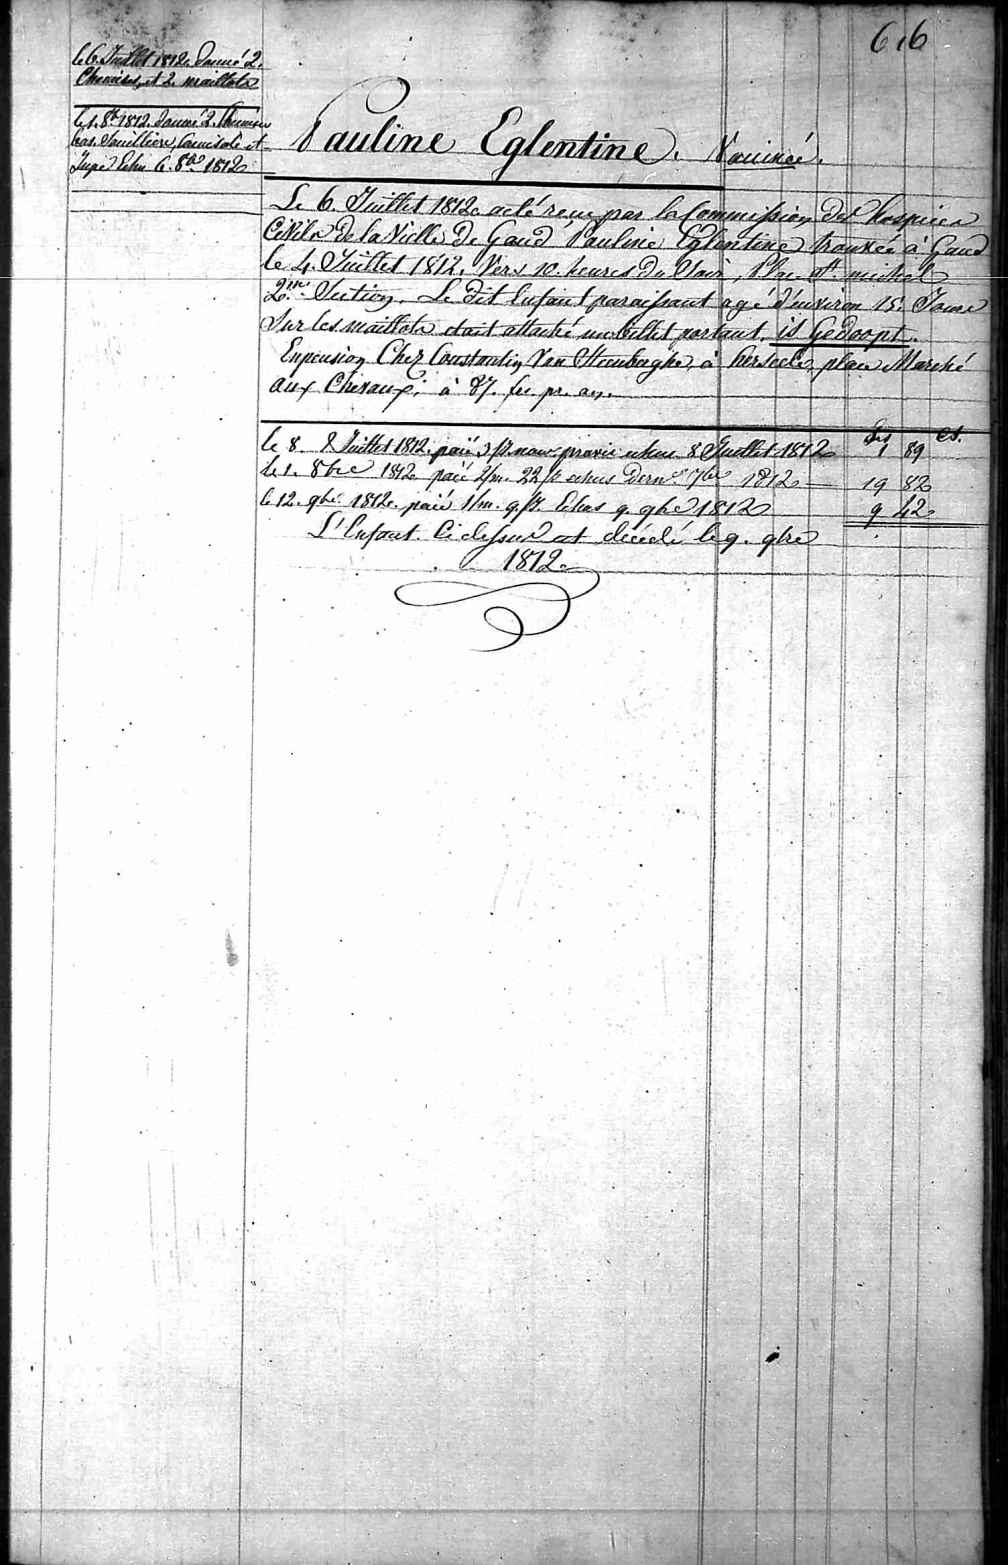 616
le 6. Juillet 1812. donné 2.
Chemises, et 2. maillots
le 1. 8bre 1812. donné 2. Chemises
bas. Camisole et
Jupe Echu 6. 8bre 1812
Pauline Eglentine. Vaccinée.
Le 6. Juillet 1812 a été reçue par la Commission des hospices
Civils de la Ville de Gand Pauline Eglentine trouvée à Gand
le 4. Juillet 1812. Vers 10. heures du Soir, Place St. michel
2me Section. Le dit Enfant paraissant agé d'environ 15. Jours
Sur les maillots etait attaché un billet portant, is Gedoopt.
En pension Chez Constantin Van Steenberghe, à herseele, place Marché
aux Chevaux, à 87. fr. pr. an.
fs cs.
le 8. Juillet 1812. paié 8 Juillet 1812 1 89
le 1. 8bre 1812 paié 2/m. 22 echus Dern. 7bre 1812 — 19 82
le 12. 9bre 1812. paié 1/m. 9. Echus 9. 9bre 1812 9 42
L'Enfant Ci dessus est décédé le 9. 9bre
1812.